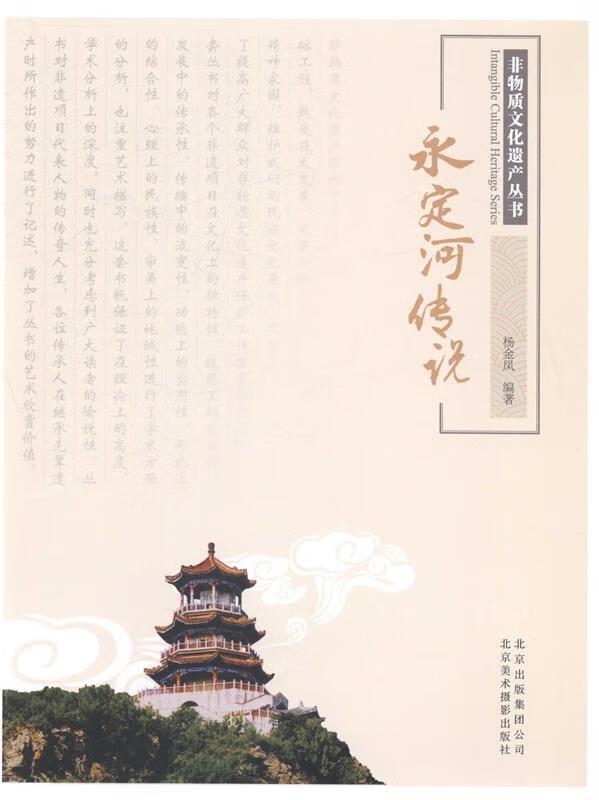 非物质文化遗产丛书
Intangible Cultural Heritage Series
永定河传说
杨金凤 编著
非物质文化
础工程
精神家园，维护
了提高广大群众对非物质文化遗产保护工作
套丛书对各个非遗项目在文化上的独特性
发展中的传承性、传播中的流变性、功能上的实用性、
的综合性、心理上的民族性、审美上的地域性进行了学术方面
的分析，也注重艺术描写。这套书既保证了在理论上的高度、
学术分析上的深度，同时也充分考虑到广大读者的愉悦性。丛
书对非遗项目代表人物的传奇人生，各位传承人在继承先辈遗
产时所作出的努力进行了记述，增加了丛书的艺术欣赏价值。
北京出版集团公司
北京美术摄影出版社